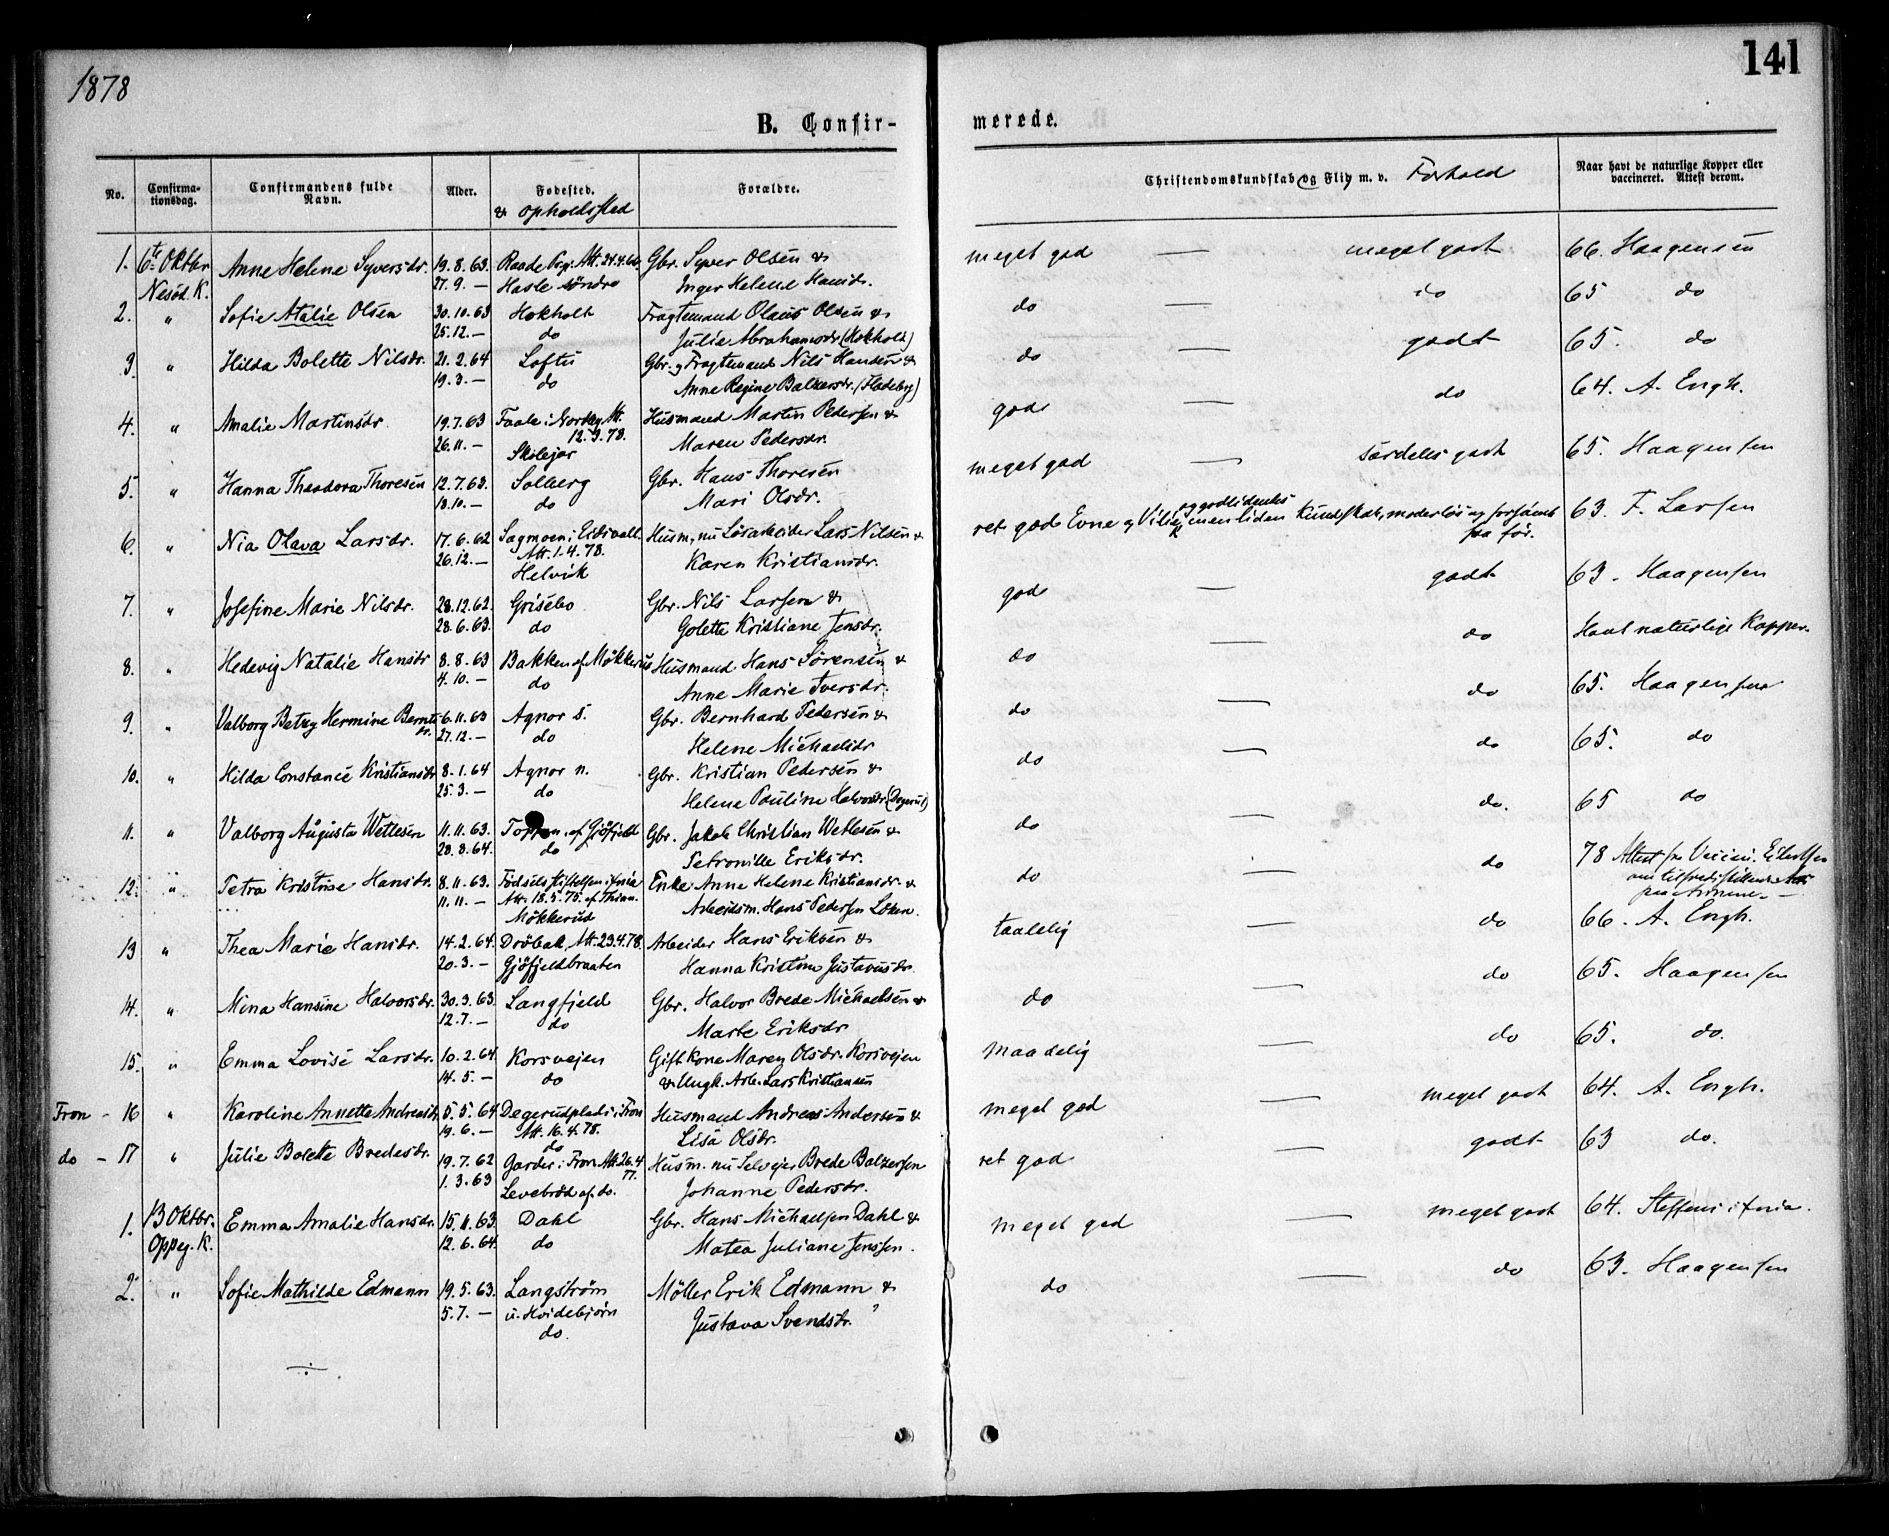 1878
141
B. Confir-
merede.
No.
Confirma-
tionsdag.
Confirmandens fulde
Navn.
Alder.
Fødested.
& Opholdssted
Forældre.
Christendomskundskab og Flid m. v. Forhold
Naar havt de naturlige Kopper eller
vaccineret. Attest derom.
1. 6te Oktbr. Anne Helene Syversdr. 19.8.63. Raade Att. 24.4.66. Gbr. Syver Olsen & meget god — meget godt 66. Haagensen
Nesod. K. 27.9. — Hasle söndre Inger Helene Hansdr.
2. " Sofie Atalie Olsen 30.10.63 Hokholt Fragtemand Olaus Olsen & do — do 65 do
25.12. — do Julie Abrahamsdr. (Hokholt)
3. " Hilda Bolette Nilsdr. 21.2.64 Loftu Gbr. og Fragtemand Nils Hansen & do — godt 65. do
19.3. — do Anne Regine Balzersdr. (Fladeby)
4. " Amalie Martinsdr. 19.7.63 Faale i Nordby Att. Husmand Martin Pedersen & god — do 64. A. Engh.
26.11. — 12.3.78. Maren Pedersdr.
Skilejar
5. " Hanna Theodora Thoresen 12.7.63. Solberg Gbr. Hans Thoresen meget god — særdeles godt 65. Haagensen
18.10. — do Mari Olsdr.
6. " Nia Olava Larsdr. 17.6.62 Sagmoen i Eidsvold. Husm., nu Lösarbeider Lars Nilsen & ret god Evne og Vilje, men liden Kundskab, moderløs og forsømt 63. F. Larsen
26.12. — Att. 1.4.78. Karen Kristiansdr. paa før.
Helvik
7. " Josefine Marie Nilsdr. 28.12.62. Grisebo Gbr. Nils Larsen & god — godt 63. Haagensen
28.6.63. do Golette Kristiane Jensdr.
8. " Hedevig Natalie Hansdr 8.8.63 Bakken af Mökkerus Husmand Hans Sörensen & do — do Havt naturlige Kopper.
4.10. — do Anne Marie Iversdr.
9. " Valborg Betzy Hermine Bernts 6.11.63 Agnor s. Gbr. Bernhard Pedersen & do — do 65. Haagensen
dr. 27.12. — do Helene Michaelsdr
10. " Hilda Constance Kristiansdr 8.1.64 Agnor n. Gbr. Kristian Pedersen & do — do 65. do
25.3. — do Helene Pauline Halvorsdr. (Dogerud)
11. " Valborg Augusta Wetlesen 11.11.63. Toppen af Gjöfjeld Gbr. Jakob Christian Wetlesen & do — do. 65 do
28.8.64. do Petronille Eriksdr.
12. " Petra Kristine Hansdr. 8.11.63. Födselsstiftelsen i Xnia Enke Anne Helene Kristiansdr. & do — do 78 Attest fra Vaccin. Eilertsen
11.11. — Att. 18.5.75. af Thinn. Arbeidsm. Hans Pedersen Löken. om tilfredsstillende
Mökkerud
13 " Thea Marie Hansdr. 14.2.64. Dröbak, Att. 23.4.78. Arbeider Hans Eriksen & taalelig — do 66. A. Engh.
20.3. — Gjöfjeldbraaten Hanna Kristine Gustavusdr.
14. " Mina Hansine Halvorsdr. 30.3.63. Langfjeld Gbr. Halvor Brede Michaelsen & do — do 65. Haagensen
12.7. — do Marte Eriksdr.
15. " Emma Lovise Larsdr. 10.2.64. Korsvejen Gift Kone Maren Olsdr. Korsvejen maadelig — do 65. do.
14.5. — do & Ungk. Arb. Lars Kristiansen
Fron - 16 " Karoline Annette Andreasdr. 5.5.64 Degerudplads i Fron Husmand Andreas Andersen & meget god — meget godt 64. A. Engh.
19.6. — Att. 16.4.78. Lisa Olsdr.
do
do - 17 " Julie Bolette Bredesdr. 19.7.62 Garder i Fron Att 26.4 Husm. nu Selvejer Brede Balzersen ret god — godt 63 do.
1.3.63 77. Johanne Pedersdr.
Levebrød af do.
1. 13 Oktbr. Emma Amalie Hansdr. 15.11.63. Dahl Gbr. Hans Michaelsen Dahl & meget god — meget godt 64. Steffens i Xnia.
Oppeg. K. 12.6.64. do Matea Juliane Jensen.
2. " Sofie Mathilde Edmann 19.5.63. Langström Möller Erik Edmann & do — do 63. Haagensen
5.7. — u. Hvidebjörn Gustava Svendsdr.
do.